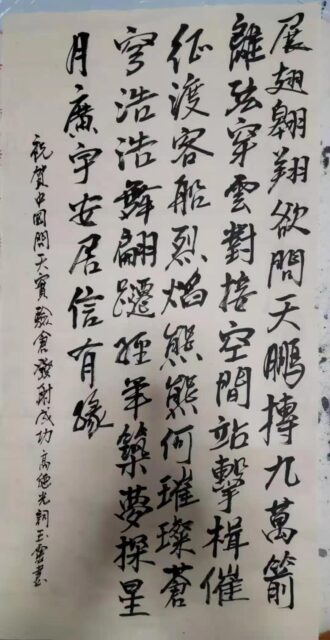 展翅翱翔欲問天鵬摶九萬箭
離弦穿雲對接空間站擊楫催
征渡客船烈焰熊熊何璀璨蒼
穹浩浩舞翩躚經年築夢探星
月廣宇安居信有緣
祝賀中國問天實驗倉發射成功 高光詞玉書